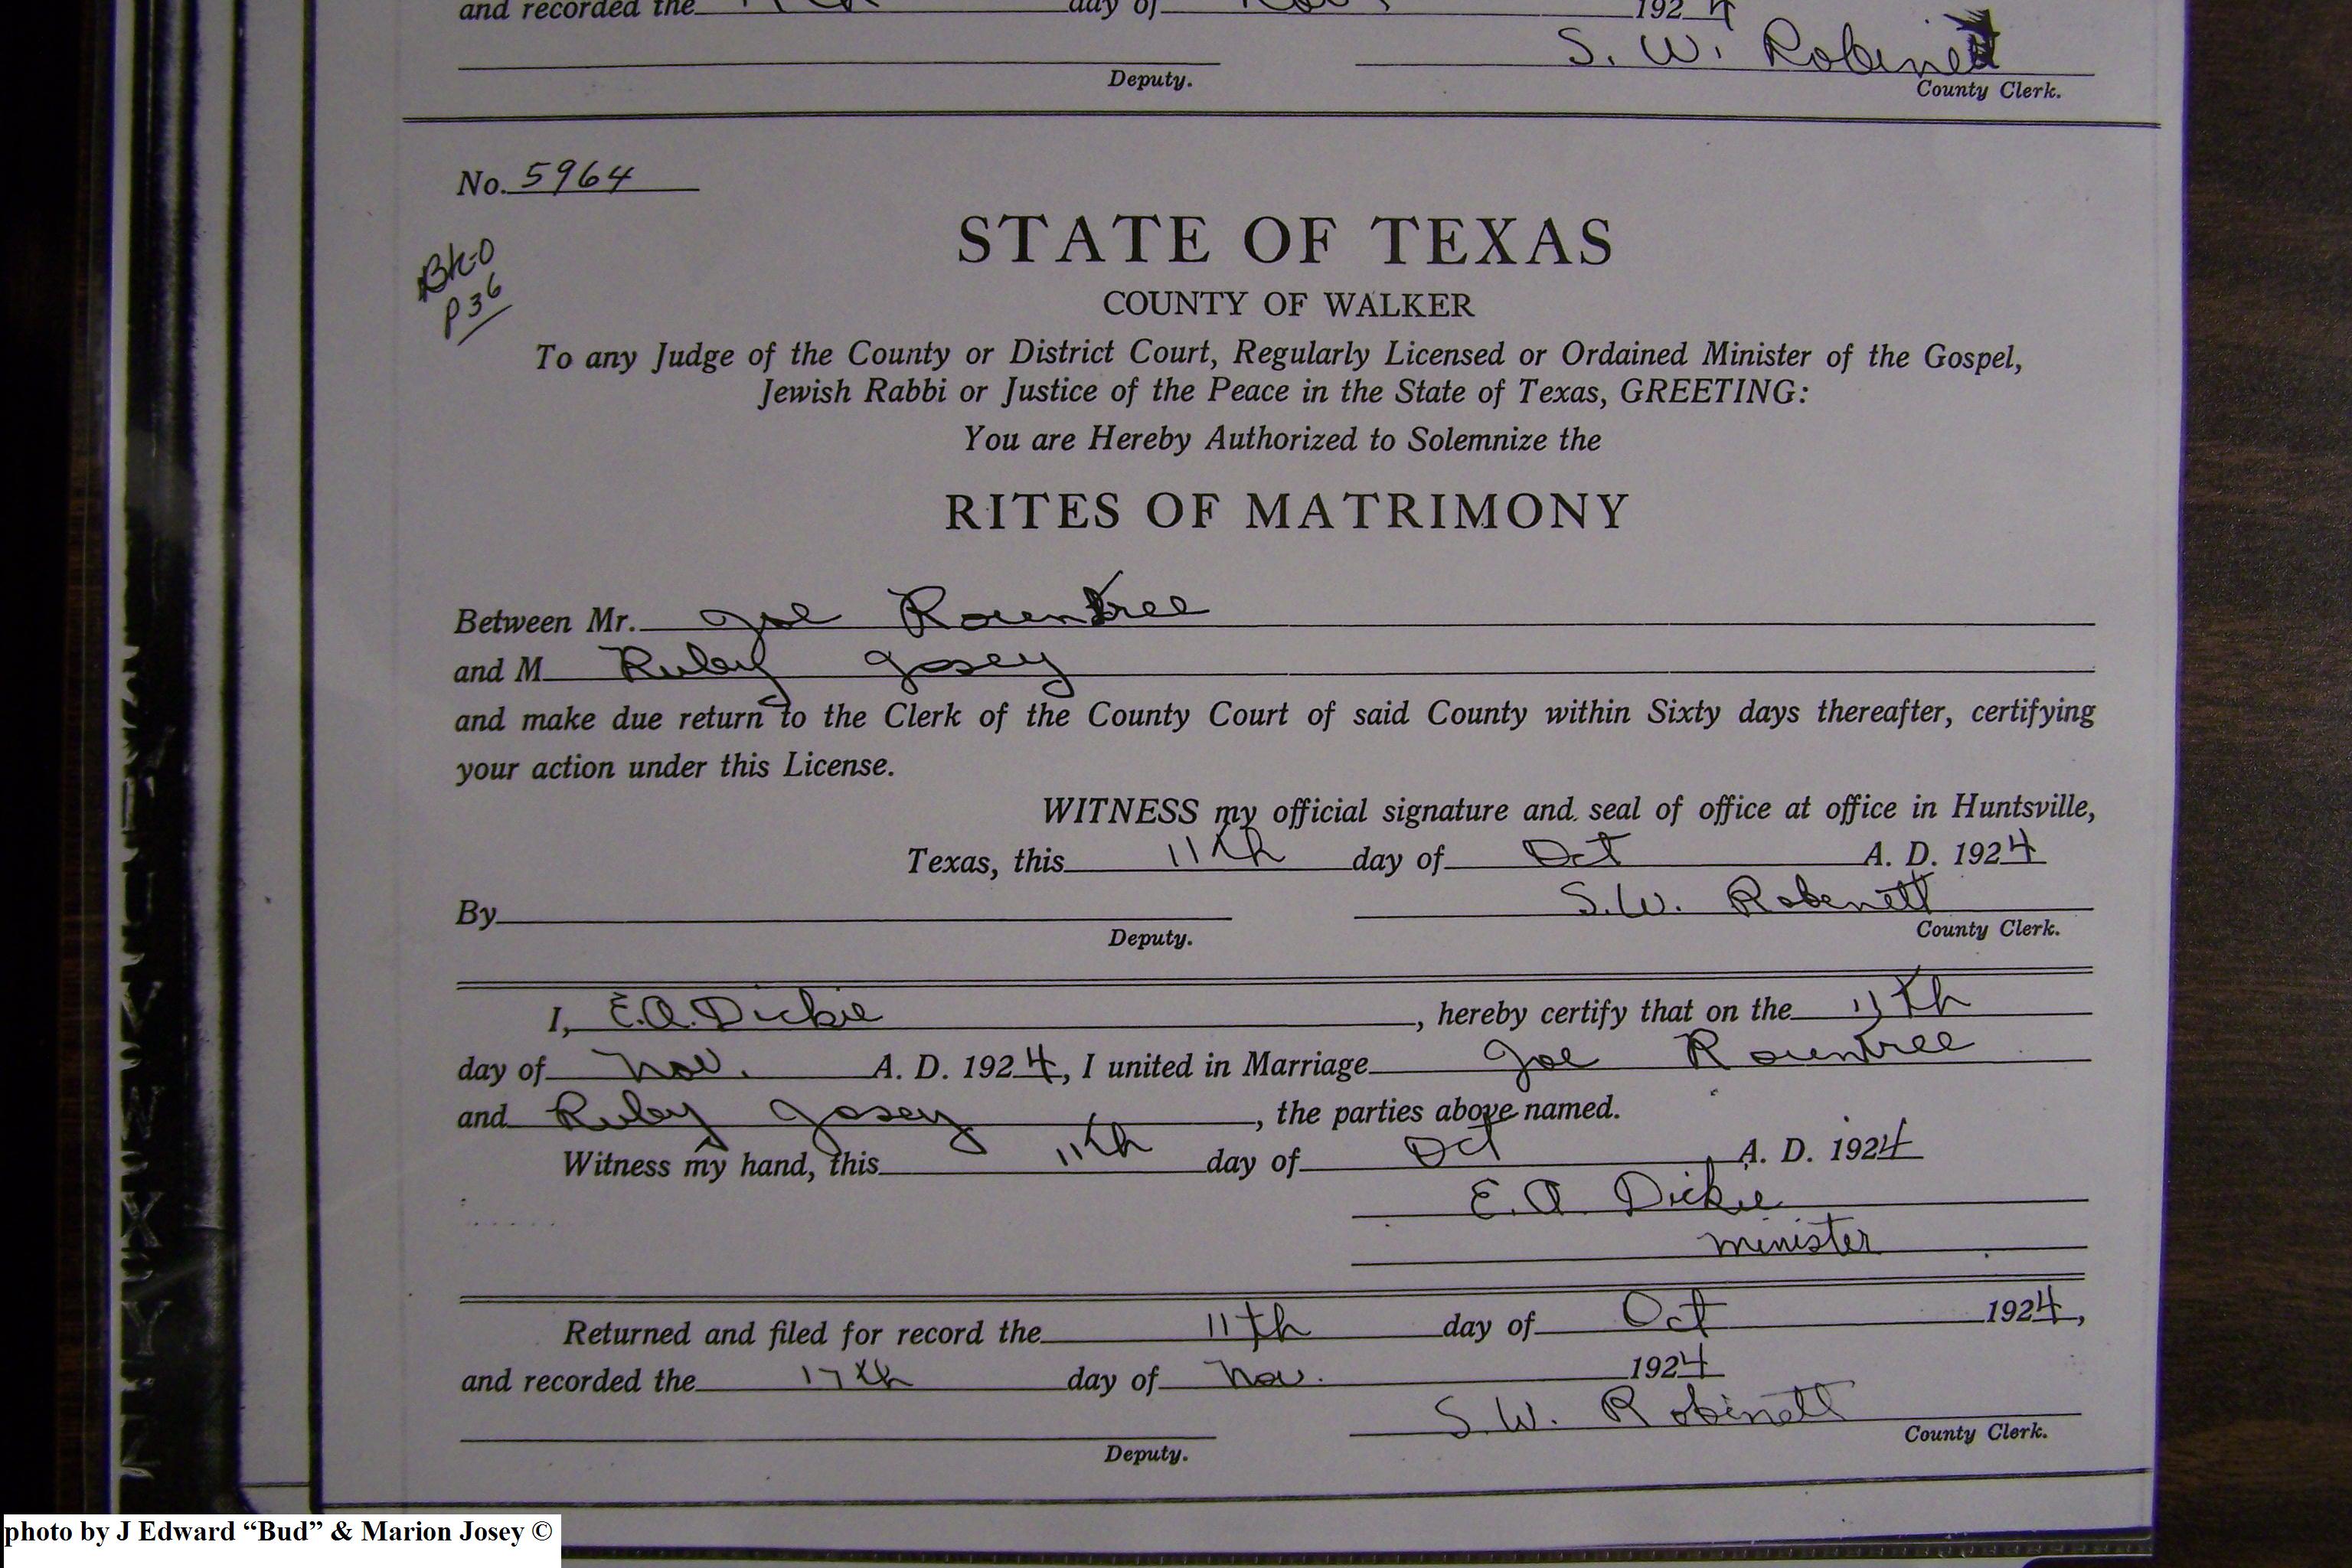 and recorded the day of 1924
S. W. Robinett
Deputy. County Clerk.
No. 5964
Bk-O
P 36
STATE OF TEXAS
COUNTY OF WALKER
To any Judge of the County or District Court, Regularly Licensed or Ordained Minister of the Gospel,
Jewish Rabbi or Justice of the Peace in the State of Texas, GREETING:
You are Hereby Authorized to Solemnize the
RITES OF MATRIMONY
Between Mr. Joe Rountree
and M Ruby Josey
and make due return to the Clerk of the County Court of said County within Sixty days thereafter, certifying
your action under this License.
WITNESS my official signature and seal of office at office in Huntsville,
Texas, this 11th day of Oct A. D. 1924
By S.W. Robinett
Deputy. County Clerk.
I, E.A. Dickie, hereby certify that on the 11th
day of Nov. A. D. 1924, I united in Marriage Joe Rountree
and Ruby Josey, the parties above named.
Witness my hand, this 11th day of Oct A. D. 1924
E. A. Dickie
minister
Returned and filed for record the 11th day of Oct 1924,
and recorded the 17th day of Nov. 1924
S. W. Robinett
Deputy. County Clerk.
photo by J Edward “Bud” & Marion Josey ©